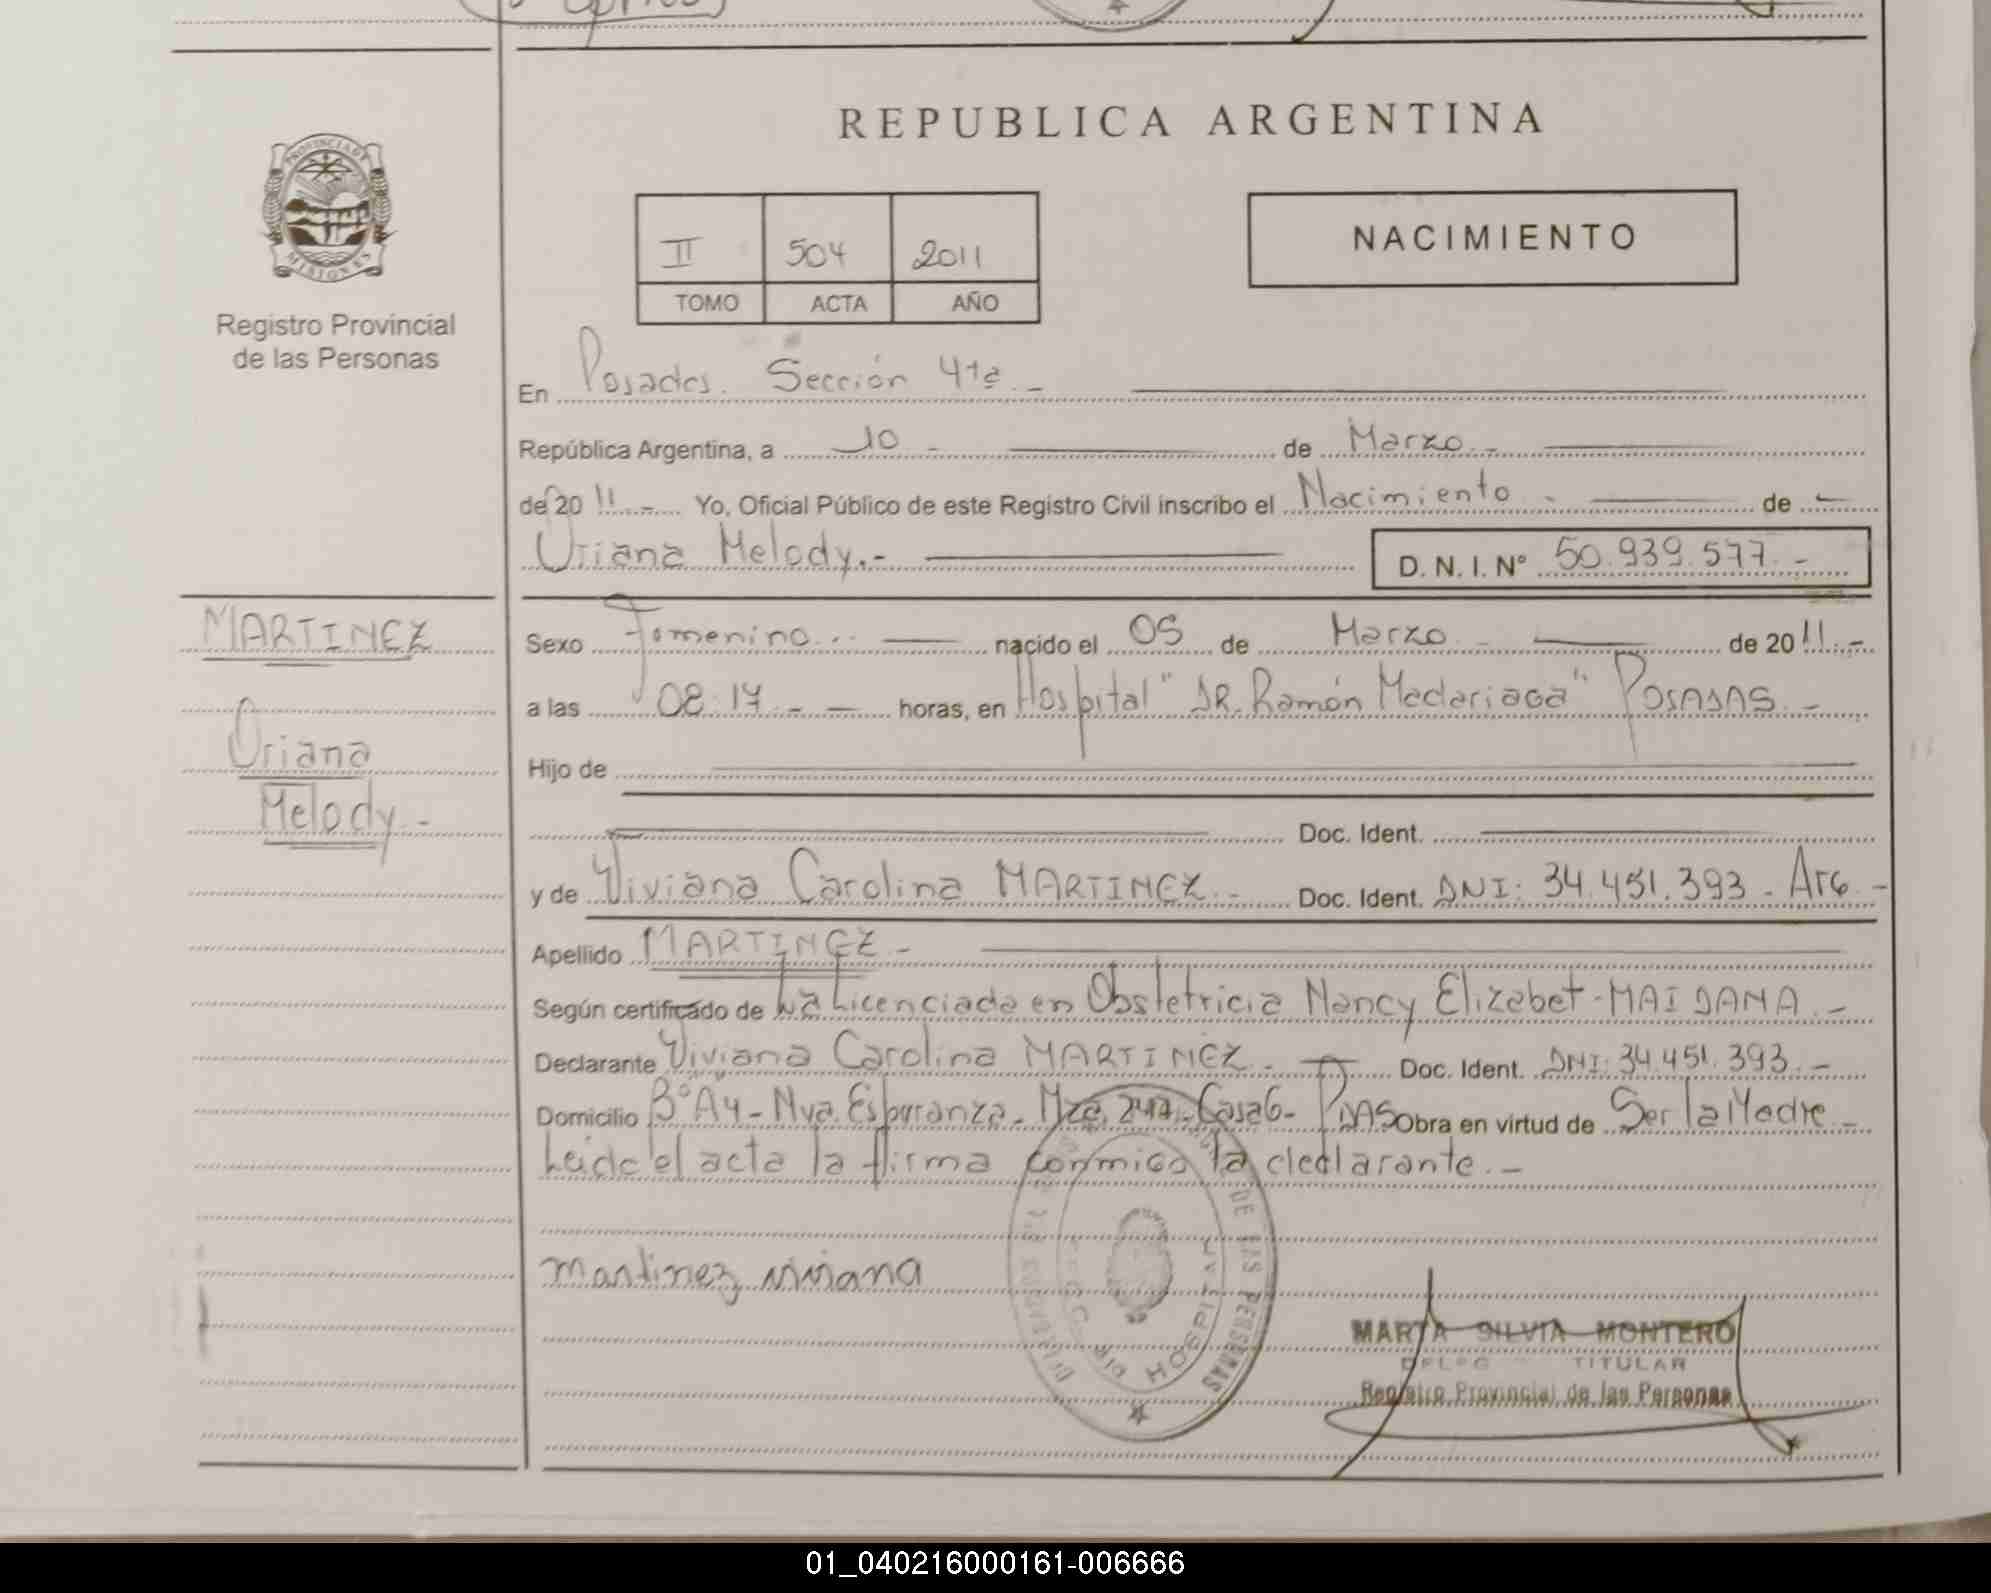 REPUBLICA ARGENTINA
PROVINCIA DE
MISIONES
Registro Provincial
de las Personas
II 504 2011
TOMO ACTA AÑO
NACIMIENTO
En Posadas. Sección 4ta.-
República Argentina, a 10 - de Marzo.-
de 20 11.- Yo, Oficial Público de este Registro Civil inscribo el Nacimiento - de -
Oriana Melody.- D. N. I. Nº 50.939.577.-
MARTINEZ
Oriana
Melody.-
Sexo Femenino... nacido el 05 de Marzo.- de 20 11.-
a las 08:17.- - horas, en Hospital "DR. Ramón Madariaga" POSADAS.-
Hijo de
Doc. Ident.
y de Viviana Carolina MARTINEZ.- Doc. Ident. DNI: 34.451.393 - Arg.-
Apellido MARTINEZ -
Según certificado de La Licenciada en Obstetricia Nancy Elizabet - MAIDANA.-
Declarante Viviana Carolina MARTINEZ.- Doc. Ident. DNI: 34.451.393.-
Domicilio Bº A4 - Nva. Esperanza - Mza. 247 - Casa 6 - PDAS Obra en virtud de Ser la Madre -
Leida el acta la firma conmigo la declarante.-
martinez viviana
DE LAS PERSONAS
HOSPITAL
MARTA SILVIA MONTERO
TITULAR
Registro Provincial de las Personas
01_040216000161-006666